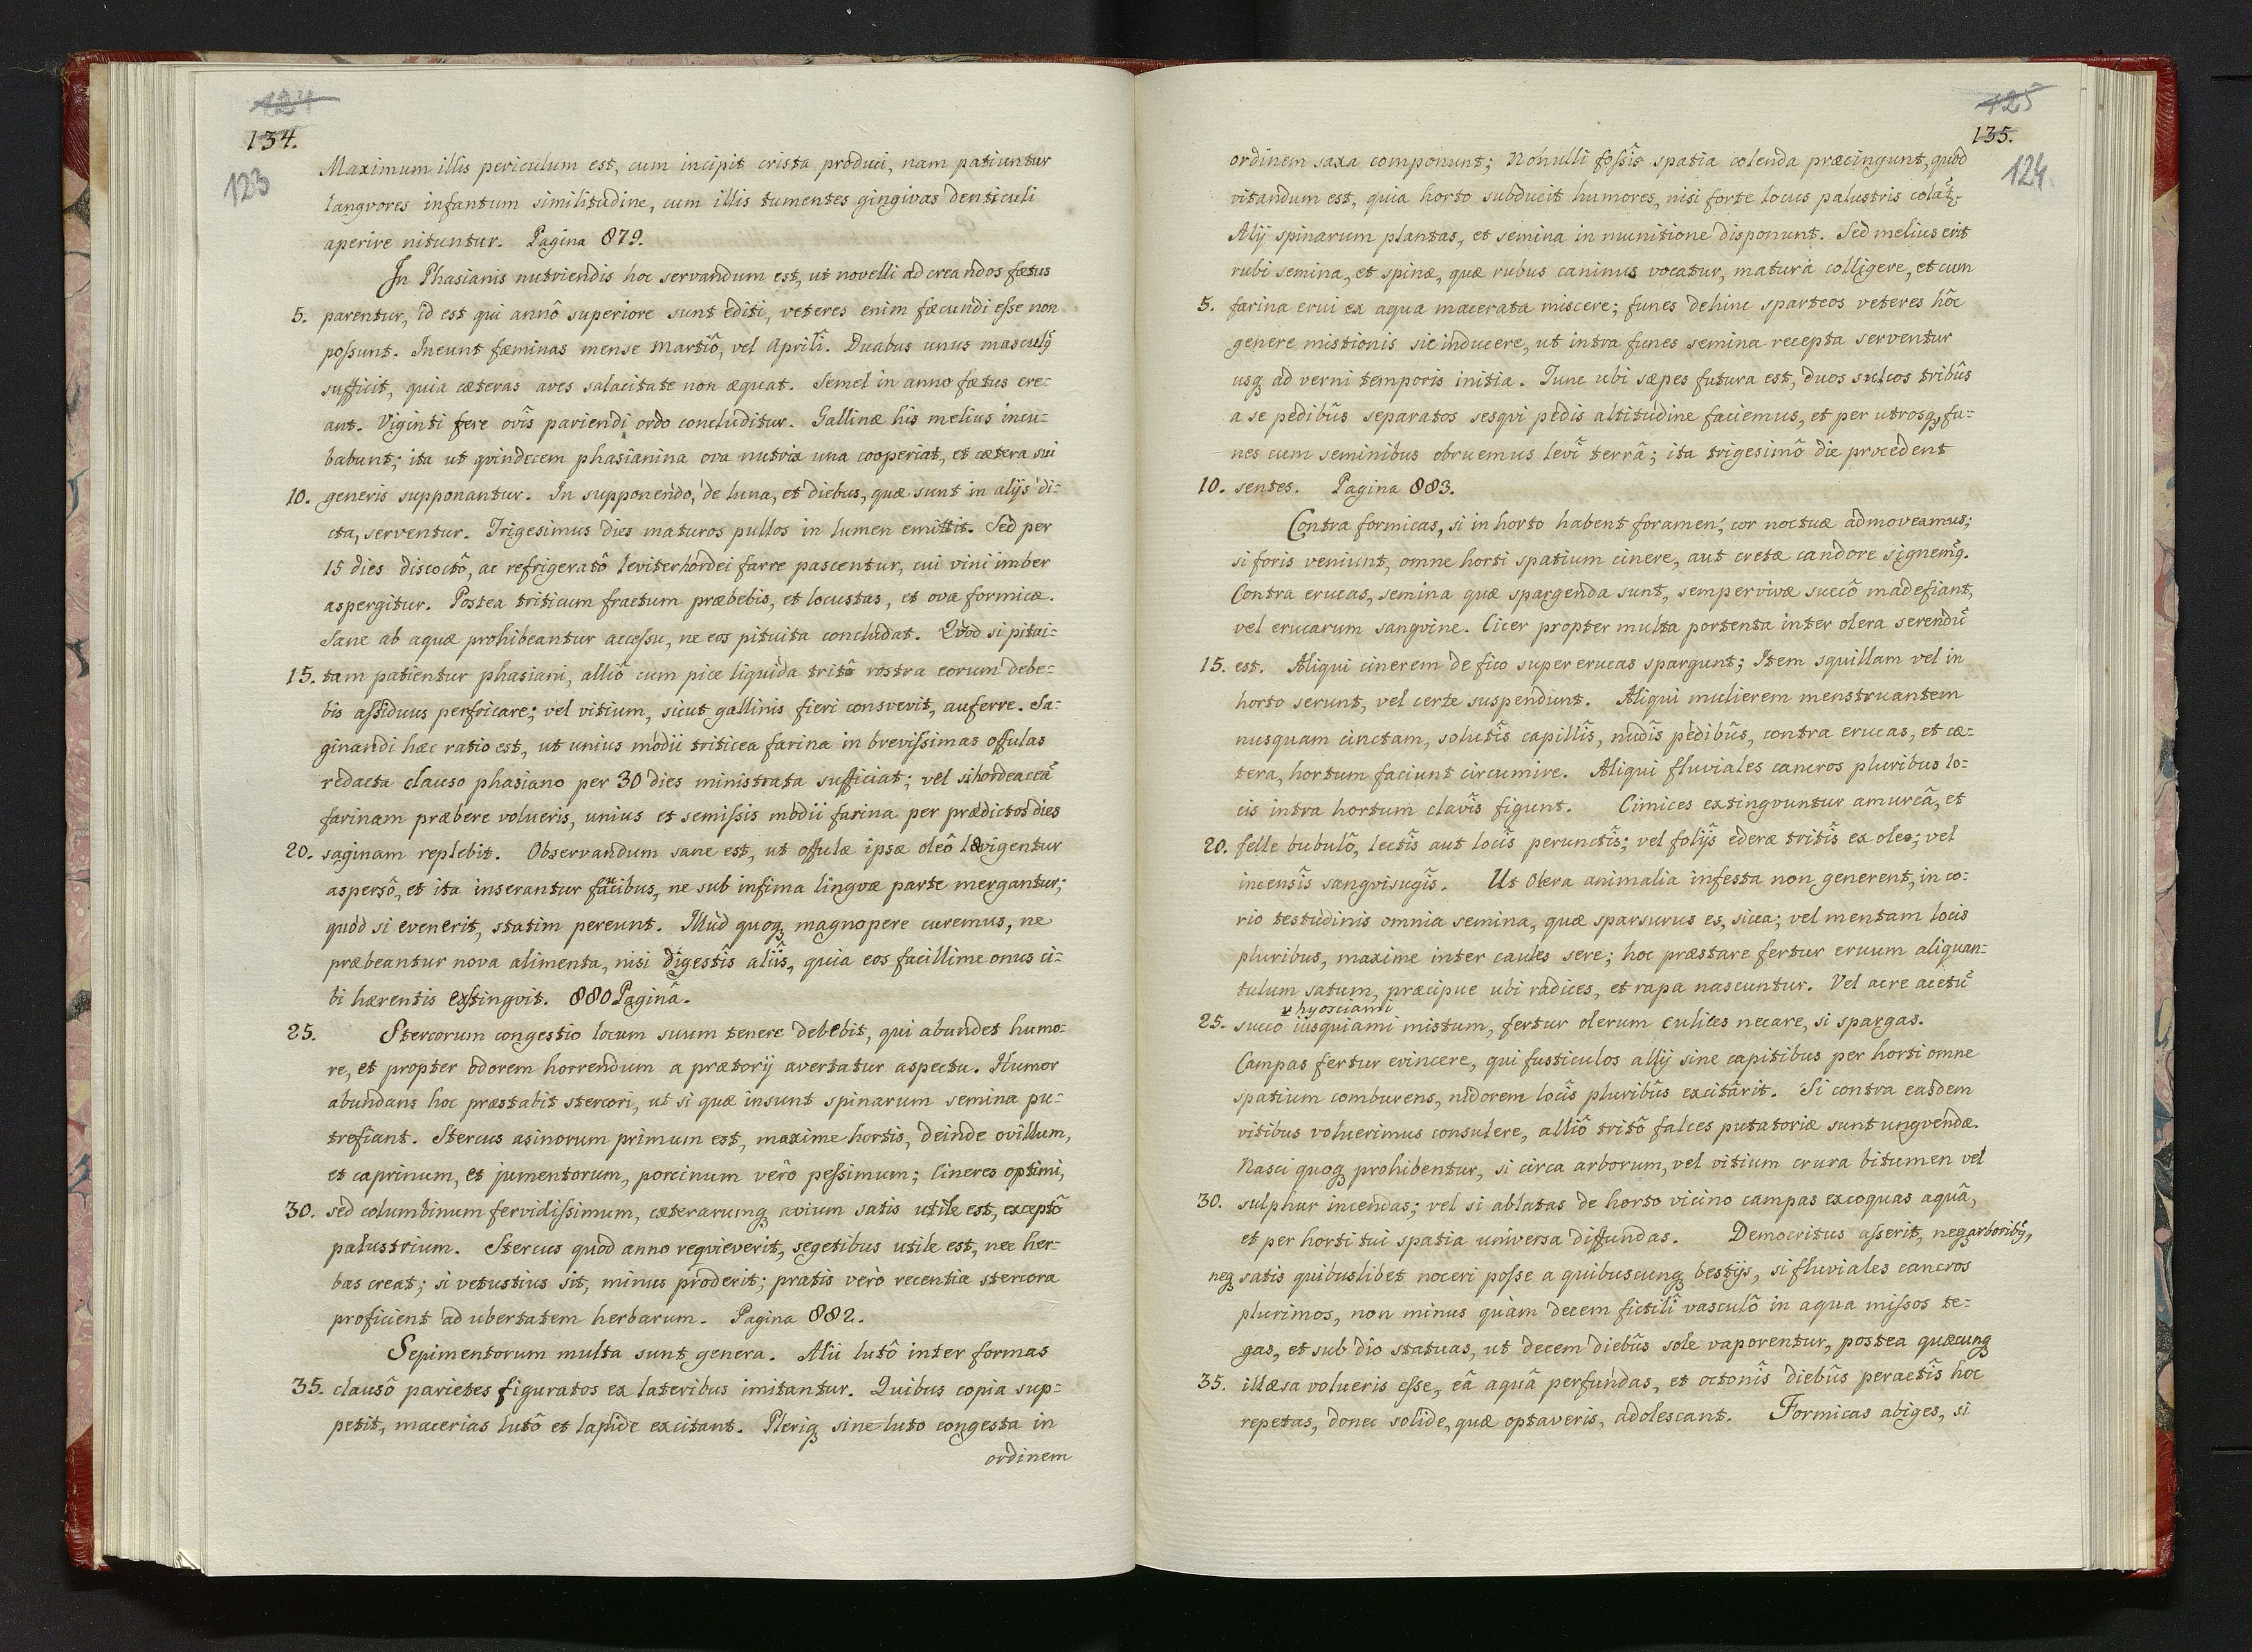 124
134.
123
Maximum illis periculum est, cum incipit crista produci, nam patiuntur
langvores infantum similitudine, cum illis tumentes gingivas denticuli
aperire nituntur. Pagina 879.
In Phasianis nutriendis hoc servandum est, ut novelli ad creandos fœtus
5. parentur, id est qui annô superiore sunt editi, veteres enim fœcundi esse non
possunt. Ineunt fæminas mense Martiô, vel Aprilî. Duabus unus masculq̃
sufficit, quia cæteras aves salacitate non æquat. Semel in anno fœtus cre=
ant. Viginti fere ovîs pariendi ordo concluditur. Gallinæ his melius incu=
babunt; ita ut qvindecem phasianina ova nutrix una cooperiat, et cætera sui
10. generis supponantur. In supponendo, de luna, et diebus, quæ sunt in alijs di=
cta, serventur. Trigesimus dies maturos pullos in lumen emittit. Sed per
15 dies discoctô, ac refrigeratô leviter hordei farre pascentur, cui vini imber
aspergitur. Postea triticum fractum præbebis, et locustas, et ova formicæ.
Sane ab aquæ prohibeantur accessu, ne eos pituita concludat. Quod si pitui=
15. tam patientur phasiani, alliô cum pice liquida tritô rostra eorum debe=
bis assiduus perfricare; vel vitium, sicut gallinis fieri consvevit, auferre. Sa=
ginandi hæc ratio est, ut unius modii triticea farina in brevissimas offulas
redacta clauso phasiano per 30 dies ministrata sufficiat; vel si hordeaceã
farinam præbere volueris, unius et semissis modii farina per prædictos dies
20. saginam replebit. Observandum sane est, ut offulæ ipsæ oleô lævigentur
aspersô, et ita inserantur faucibus, ne sub infima lingvæ parte mergantur;
quod si evenerit, statim pereunt. Illud quoq3 magnopere curemus, ne
præbeantur nova alimenta, nisi digestîs aliîs, quia eos facillime onus ci=
bi hærentis exstingvit. 880 Paginâ.
25. Stercorum congestio locum suum tenere debebit, qui abundet humo=
re, et propter odorem horrendum a prætorij avertatur aspectu. Humor
abundans hoc præstabit stercori, ut si quæ insunt spinarum semina pu=
trefiant. Stercus asinorum primum est, maxime hortis, deinde ovillum,
et caprinum, et jumentorum, porcinum verò pessimum; Cineres optimi,
30. sed columbinum fervidissimum, cæterarumq3 avium satis utile est, exceptô
palustrium. Stercus quod anno reqvieverit, segetibus utile est, nec her=
bas creat; si vetustius sit, minus proderit; pratis verò recentia stercora
proficient ad ubertatem herbarum. Pagina 882.
Sepimentorum multa sunt genera. Alii lutô inter formas
35. clausô parietes figuratos ex lateribus imitantur. Quibus copia sup=
petit, macerias lutô et lapide excitant. Pleriq3 sine luto congesta in
ordinem
125
135.
124.
ordinem saxa componunt; Nonulli fossîs spatia colenda præcingunt, quod
vitandum est, quia horto subducit humores, nisi forte locus palustris colat̃.
Alij spinarum plantas, et semina in munitione disponunt. Sed melius erit
rubi semina, et spinæ, quæ rubus caninus vocatur, matura colligere, et cum
5. farina ervi ex aqua macerata miscere; funes dehinc sparteos veteres hôc
genere mistionis sic inducere, ut intra funes semina recepta serventur
usq3 ad verni temporis initia. Tunc ubi sæpes futura est, duos sulcos tribûs
a se pedibûs separatos sesqvi pedis altitudine faciemus, et per utrosq3 fu=
nes cum seminibus obruemus levî terrâ; ita trigesimô die procedent
10. sentes. Pagina 883.
Contra formicas, si in horto habent foramen, cor noctuæ admoveamus;
si foris veniunt, omne horti spatium cinere, aut cretæ candore signemq̃.
Contra erucas, semina quæ spargenda sunt, sempervivæ succô madefiant,
vel erucarum sangvine. Cicer propter multa portenta inter olera serendũ
15. est. Aliqui cinerem de fico super erucas spargunt; Item squillam vel in
horto serunt, vel certe suspendunt. Aliqui mulierem menstruantem
nusquam cinctam, solutîs capillîs, nudîs pedibûs, contra erucas, et cæ=
tera, hortum faciunt circumire. Aliqui fluviales cancros pluribus lo=
cis intra hortum clavîs figunt. Cimices extingvuntur amurcâ, et
20. felle bubulô, lectîs aut locîs perunctîs; vel folijs ederæ tritîs ex oleo; vel
incensîs sangvisugîs. Ut Olera animalia infesta non generent, in co=
rio testudinis omnia semina, quæ sparsurus es, sicca; vel mentam locis
pluribus, maxime inter caules sere; hoc præstare fertur ervum aliquan=
tulum satum, præcipue ubi radices, et rapa nascuntur. Vel acre acetũ
v hyosciami
25. succo iusquiami mistum, fertur olerum culices necare, si spargas.
Campas fertur evincere, qui fusticulos allij sine capitibus per horti omne
spatium comburens, nidorem locîs pluribûs excitârit. Si contra easdem
vitibus voluerimus consulere, alliô tritô falces putatoriæ sunt ungvendæ.
Nasci quoq3 prohibentur, si circa arborum, vel vitium crura bitumen vel
30. sulphur incendas; vel si ablatas de horto vicino campas excoquas aquâ,
et per horti tui spatia universa diffundas. Democritus asserit, neq3 arboribq̃,
neq3 satis quibuslibet noceri posse a quibuscunq3 bestijs, si fluviales cancros
plurimos, non minus quàm decem fictilî vasculô in aqua missos te=
gas, et sub dio statuas, ut decem diebûs sole vaporentur, postea quæcunq3
35. illæsa volueris esse, eâ aquâ perfundas, et octonîs diebûs peractîs hoc
repetas, donec solide, quæ optaveris, adolescant. Formicas abiges, si